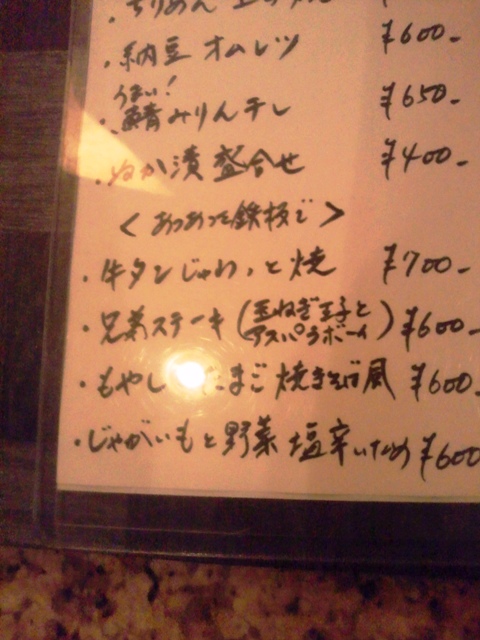 ・ちりめん
・納豆 オムレツ ¥600-
うまい!
・鯖みりん干し ¥650-
・ぬか漬盛合せ ¥400-
<あつあつ鉄板で>
・牛タンじゅわっと焼 ¥700-
・兄弟ステーキ(玉ねぎ王子と
アスパラボーイ) ¥600-
・もやし たまご焼きそば風 ¥600-
・じゃがいもと野菜塩辛いため ¥600